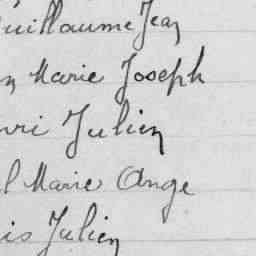 Guillaume Jean
n Marie Joseph
nri Julien
l Marie Ange
is Julien